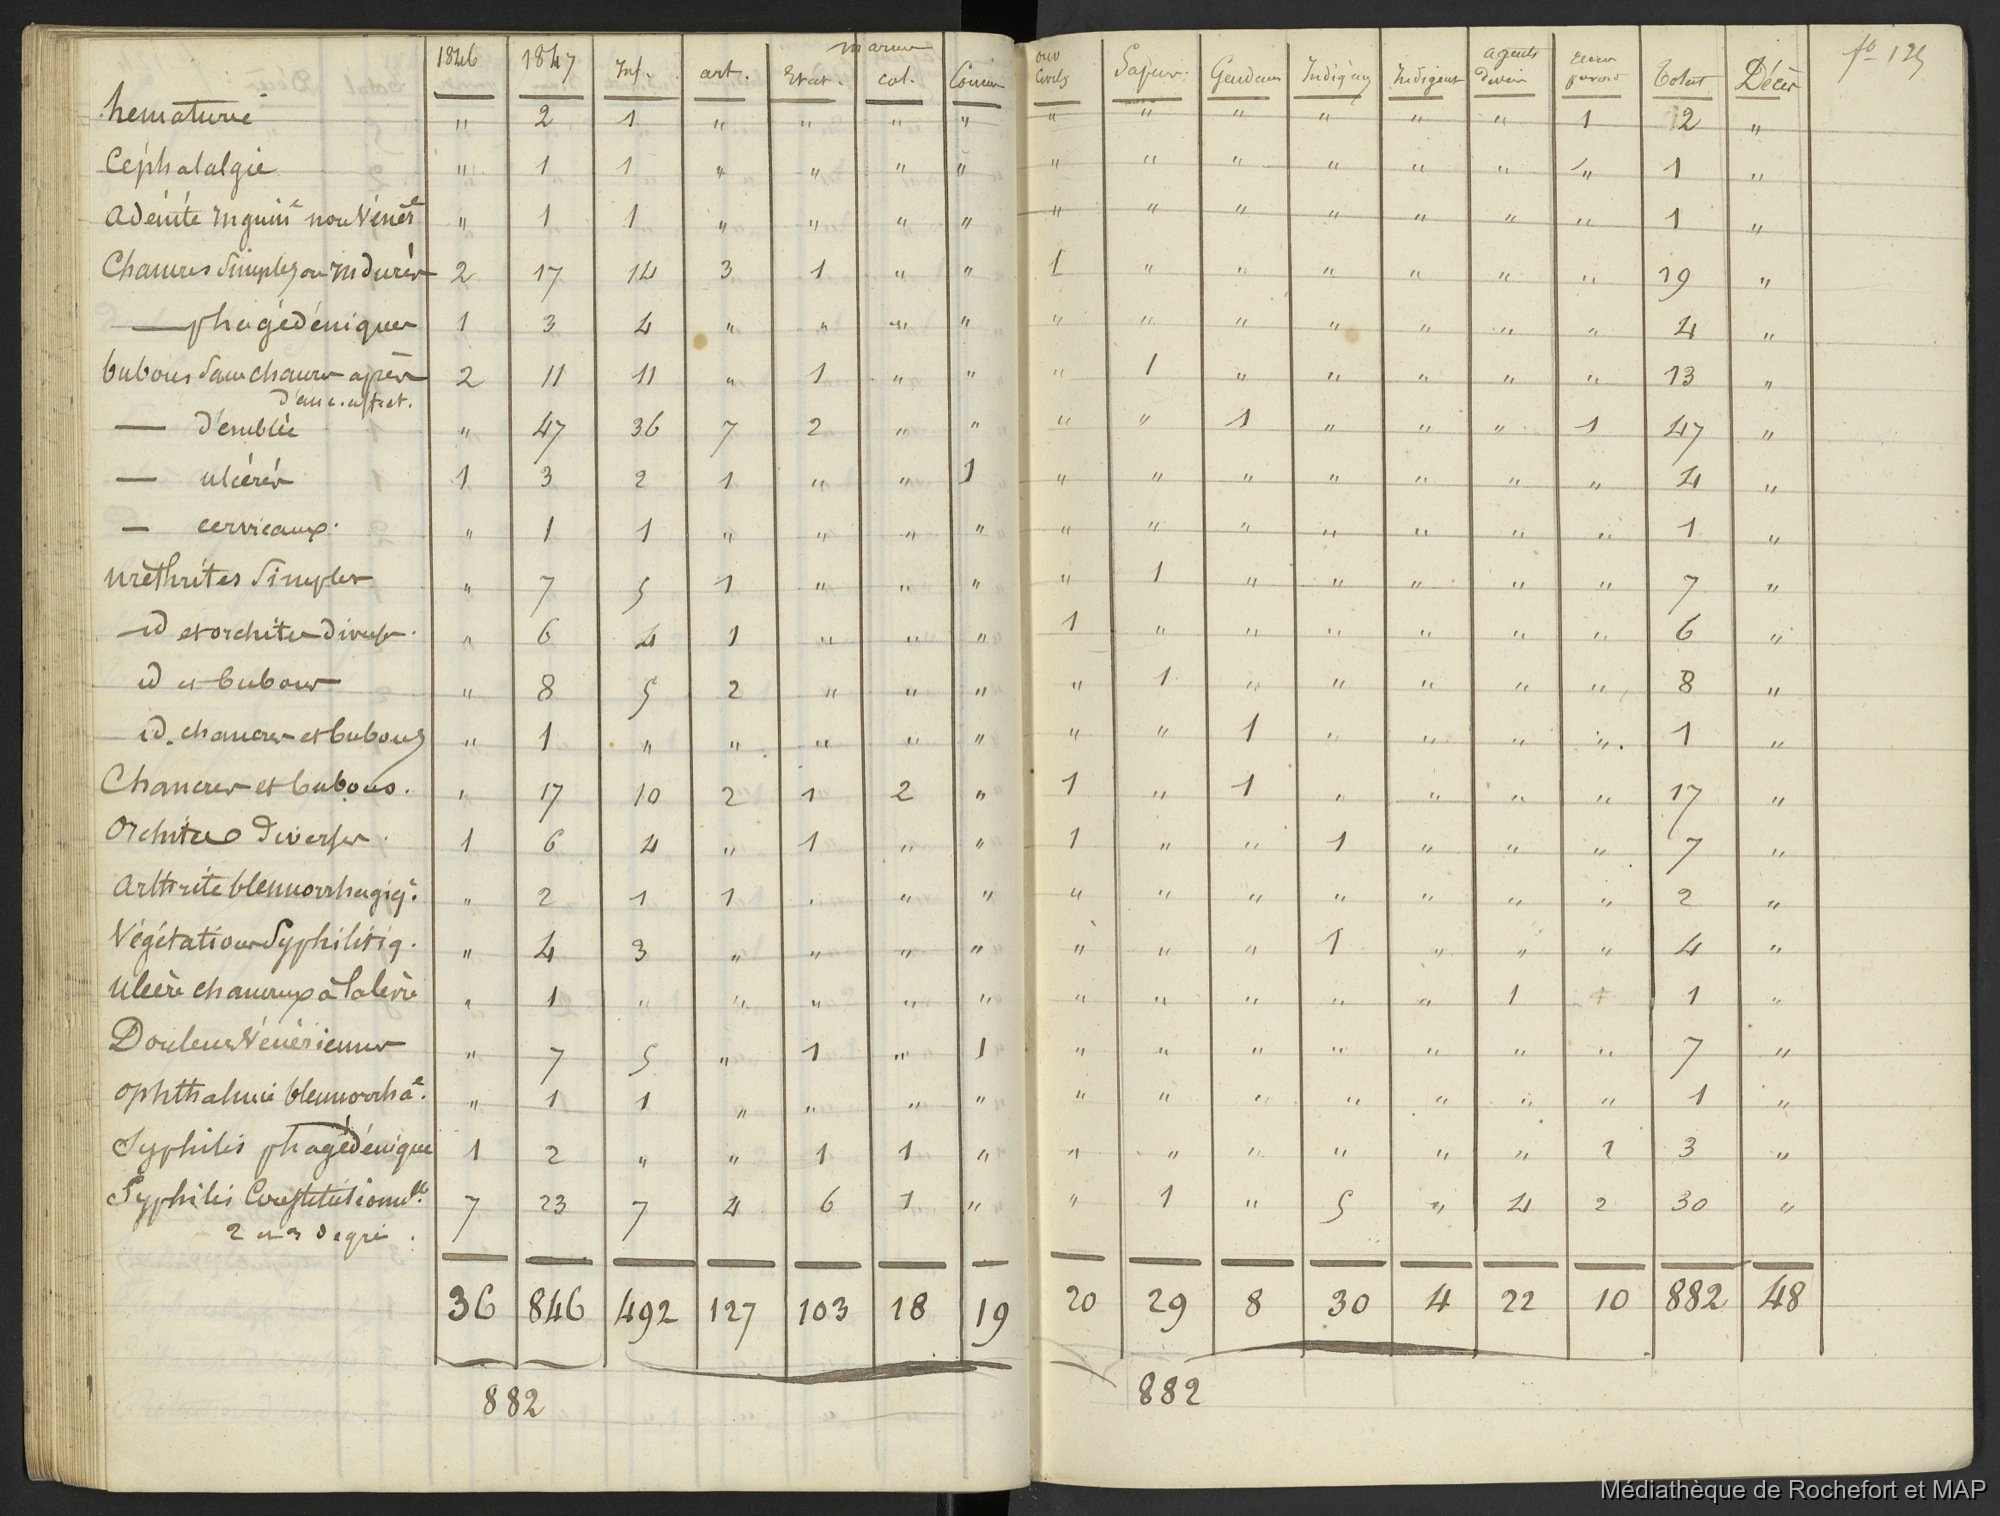 marine
1846 1847 Inf. art. Etat. col. Comm ouv Civils Sapeur. Gendarm Indigèn Indigent agents divers Total Décès fo 125
hematurie " 2 1 " " " " " " " " " " 1 2 "
Cephalalgie " 1 1 " " " " " " " " " " " 1 "
adénite inguinle non Vénérle " 1 1 " " " " " " " " " " " 1 "
Chancres Simples ou indurés 2 17 14 3 1 " " 1 " " " " " " 19 "
— phagédéniques 1 3 4 " " " " " " " " " " " 4 "
bubons sans chancres après 2 11 11 " 1 " " " 1 " " " " " 13 "
d'anc. affect.
— d'emblée " 47 36 7 2 " " " " 1 " " " 1 47 "
— ulcérés 1 3 2 1 " " 1 " " " " " " " 4 "
— cervicaux. " 1 1 " " " " " " " " " " " 1 "
uréthrites simples " 7 5 1 " " " " 1 " " " " " 7 "
— id et orchites diverses. " 6 4 1 " " " 1 " " " " " " 6 "
id et bubons " 8 5 2 " " " " 1 " " " " " 8 "
id. chancres et bubons " 1 " " " " " " " 1 " " " " 1 "
Chancres et bubons. " 17 10 2 1 2 " 1 " 1 " " " " 17 "
Orchites diverses. 1 6 4 " 1 " " 1 " " 1 " " " 7 "
Arthrite blennorrhagiq. " 2 1 1 " " " " " " " " " " 2 "
Végétations Syphilitiq. " 4 3 " " " " " " " 1 " " " 4 "
Ulcère chancreux à la lèvre " 1 " " " " " " " " " " 1 1 "
Douleurs Vénériennes " 7 5 " 1 " 1 " " " " " " " 7 "
Ophthalmie blennorrhale. " 1 1 " " " " " " " " " " " 1 "
Syphilis phagédénique 1 2 " " 1 1 " " " " " " " 1 3 "
Syphilis Constitutionelle 7 23 7 4 6 1 " " 1 " 5 " 4 2 30 "
2 et 3 degré.
36 846 492 127 103 18 19 20 29 8 30 4 22 10 882 48
882 882
Médiathèque de Rochefort et MAP